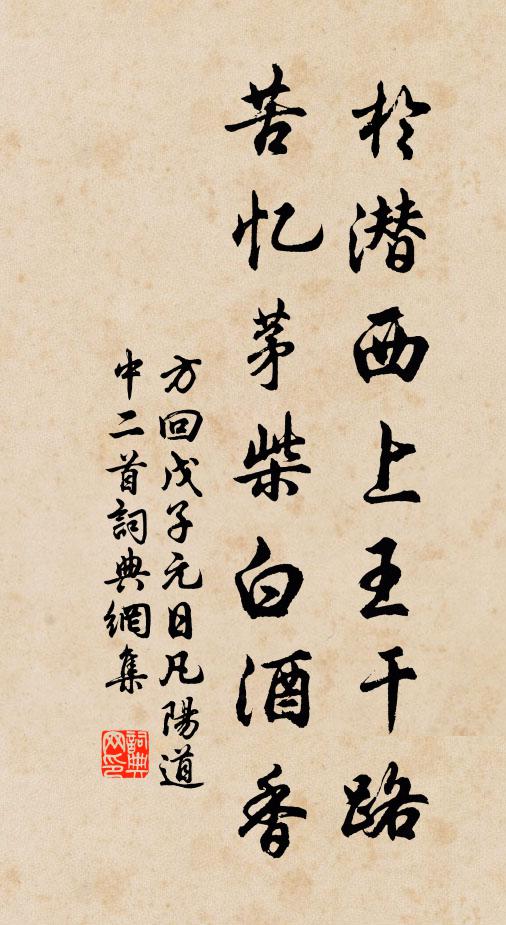 於潜西上王干路
苦忆茅柴白酒香
方回戊子元日凡陽道
中二首詞典網集
詞典网印